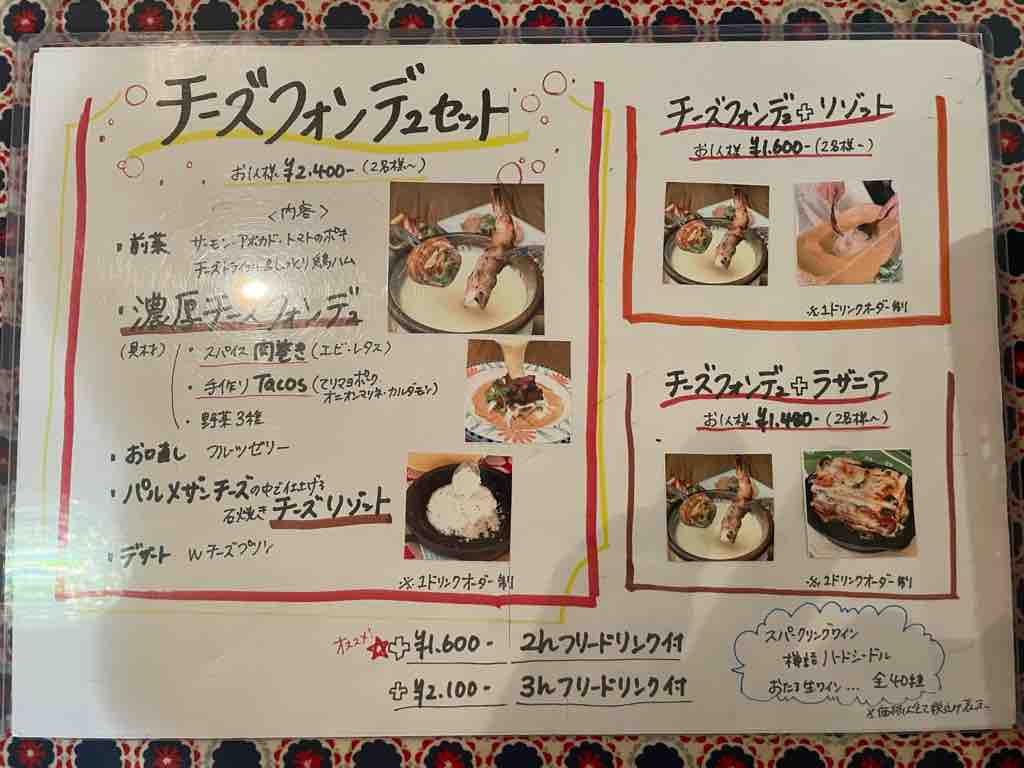 チーズフォンデュセット
お1人様 ¥2.400-(2名様〜)
<内容>
・前菜 サーモン・アボカド・トマトのポキ
しっとり鶏ハム
・濃厚チーズフォンデュ
(具材)
・スパイス肉巻き(エビ・レタス)
・手作りTacos(テリマヨポーク
オニオンマリネ・カルダモン)
・野菜3種
・お口直し フルーツゼリー
・パルメザンチーズの中で仕上げる
石焼きチーズリゾット
・デザート Wチーズプリン
※1ドリンクオーダー制
チーズフォンデュ+リゾット
お1人様 ¥1.600-(2名様〜)
※1ドリンクオーダー制
チーズフォンデュ+ラザニア
お1人様 ¥1.480-(2名様〜)
※1ドリンクオーダー制
オススメ!☆+¥1.600- 2hフリードリンク付
+¥2.100- 3hフリードリンク付
スパークリングワイン
ハードシードル
おたる生ワイン... 全40種
※価格は全て税込み表示